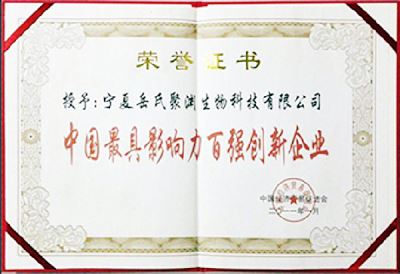 荣誉证书
授予：宁夏岳氏聚渊生物科技有限公司
中国最具影响力百强创新企业